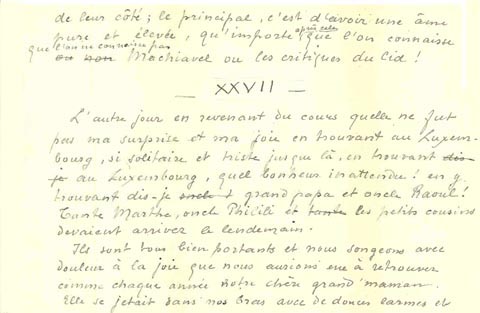 de leur côté ; le principal, c'est d'avoir une âme
pure et élevée, qu'importe après cela que l'on connaisse
que l'on ne connaisse pas
ou non Machiavel ou les critiques du Cid !
XXVII
L'autre jour en revenant du cours quelle ne fut
pas ma surprise et ma joie en trouvant au Luxem-
bourg, si solitaire et triste jusque là, en trouvant dis-
je au Luxembourg, quel bonheur inattendu ! en y
trouvant dis-je oncle grand papa et oncle Raoul !
Tante Marthe, oncle Philili et tante les petits cousins
devaient arriver le lendemain.
Ils sont tous bien portants et nous songeons avec
douleur à la joie que nous aurions eue à retrouver
comme chaque année notre chère grand'maman.
Elle se jetait dans nos bras avec de douces larmes et